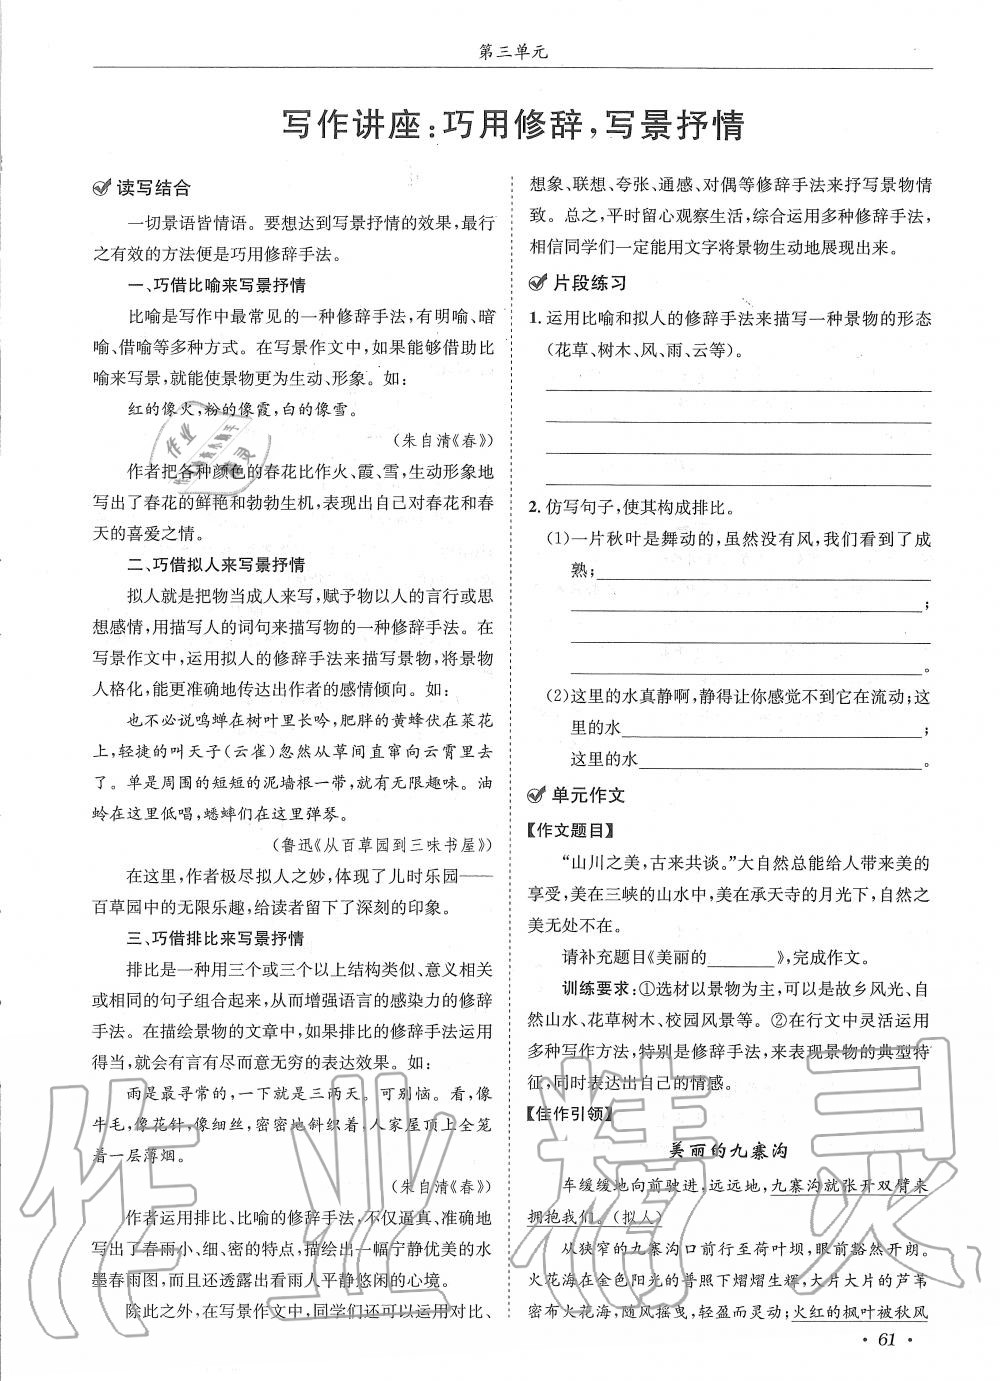 第三单元
写作讲座:巧用修辞,写景抒情
读写结合
一切景语皆情语。要想达到写景抒情的效果,最行
之有效的方法便是巧用修辞手法。
一、巧借比喻来写景抒情
比喻是写作中最常见的一种修辞手法,有明喻、暗
喻、借喻等多种方式。在写景作文中,如果能够借助比
喻来写景,就能使景物更为生动、形象。如:
红的像火,粉的像霞,白的像雪。
(朱自清《春》)
作者把各种颜色的春花比作火、霞、雪,生动形象地
写出了春花的鲜艳和勃勃生机,表现出自己对春花和春
天的喜爱之情。
二、巧借拟人来写景抒情
拟人就是把物当成人来写,赋予物以人的言行或思
想感情,用描写人的词句来描写物的一种修辞手法。在
写景作文中,运用拟人的修辞手法来描写景物,将景物
人格化,能更准确地传达出作者的感情倾向。如:
也不必说鸣蝉在树叶里长吟,肥胖的黄蜂伏在菜花
上,轻捷的叫天子(云雀)忽然从草间直窜向云霄里去
了。单是周围的短短的泥墙根一带,就有无限趣味。油
蛉在这里低唱,蟋蟀们在这里弹琴。
(鲁迅《从百草园到三味书屋》)
在这里,作者极尽拟人之妙,体现了儿时乐园——
百草园中的无限乐趣,给读者留下了深刻的印象。
三、巧借排比来写景抒情
排比是一种用三个或三个以上结构类似、意义相关
或相同的句子组合起来,从而增强语言的感染力的修辞
手法。在描绘景物的文章中,如果排比的修辞手法运用
得当,就会有言有尽而意无穷的表达效果。如:
雨是最寻常的,一下就是三两天。可别恼。看,像
牛毛,像花针,像细丝,密密地斜织着,人家屋顶上全笼
着一层薄烟。
(朱自清《春》)
作者运用排比、比喻的修辞手法,不仅逼真、准确地
写出了春雨小、细、密的特点,描绘出一幅宁静优美的水
墨春雨图,而且还透露出看雨人平静悠闲的心境。
除此之外,在写景作文中,同学们还可以运用对比、
想象、联想、夸张、通感、对偶等修辞手法来抒写景物情
致。总之,平时留心观察生活,综合运用多种修辞手法,
相信同学们一定能用文字将景物生动地展现出来。
片段练习
1.运用比喻和拟人的修辞手法来描写一种景物的形态
(花草、树木、风、雨、云等)。
2.仿写句子,使其构成排比。
(1)一片秋叶是舞动的,虽然没有风,我们看到了成
熟;
;
。
(2)这里的水真静啊,静得让你感觉不到它在流动;这
里的水;
这里的水。
单元作文
【作文题目】
“山川之美,古来共谈。”大自然总能给人带来美的
享受,美在三峡的山水中,美在承天寺的月光下,自然之
美无处不在。
请补充题目《美丽的________》,完成作文。
训练要求:①选材以景物为主,可以是故乡风光、自
然山水、花草树木、校园风景等。②在行文中灵活运用
多种写作方法,特别是修辞手法,来表现景物的典型特
征,同时表达出自己的情感。
【佳作引领】
美丽的九寨沟
车缓缓地向前驶进,远远地,九寨沟就张开双臂来
拥抱我们。(拟人)
从狭窄的九寨沟口前行至荷叶坝,眼前豁然开朗。
火花海在金色阳光的普照下熠熠生辉,大片大片的芦苇
密布火花海,随风摇曳,轻盈而灵动;火红的枫叶被秋风
· 61 ·
作业精灵